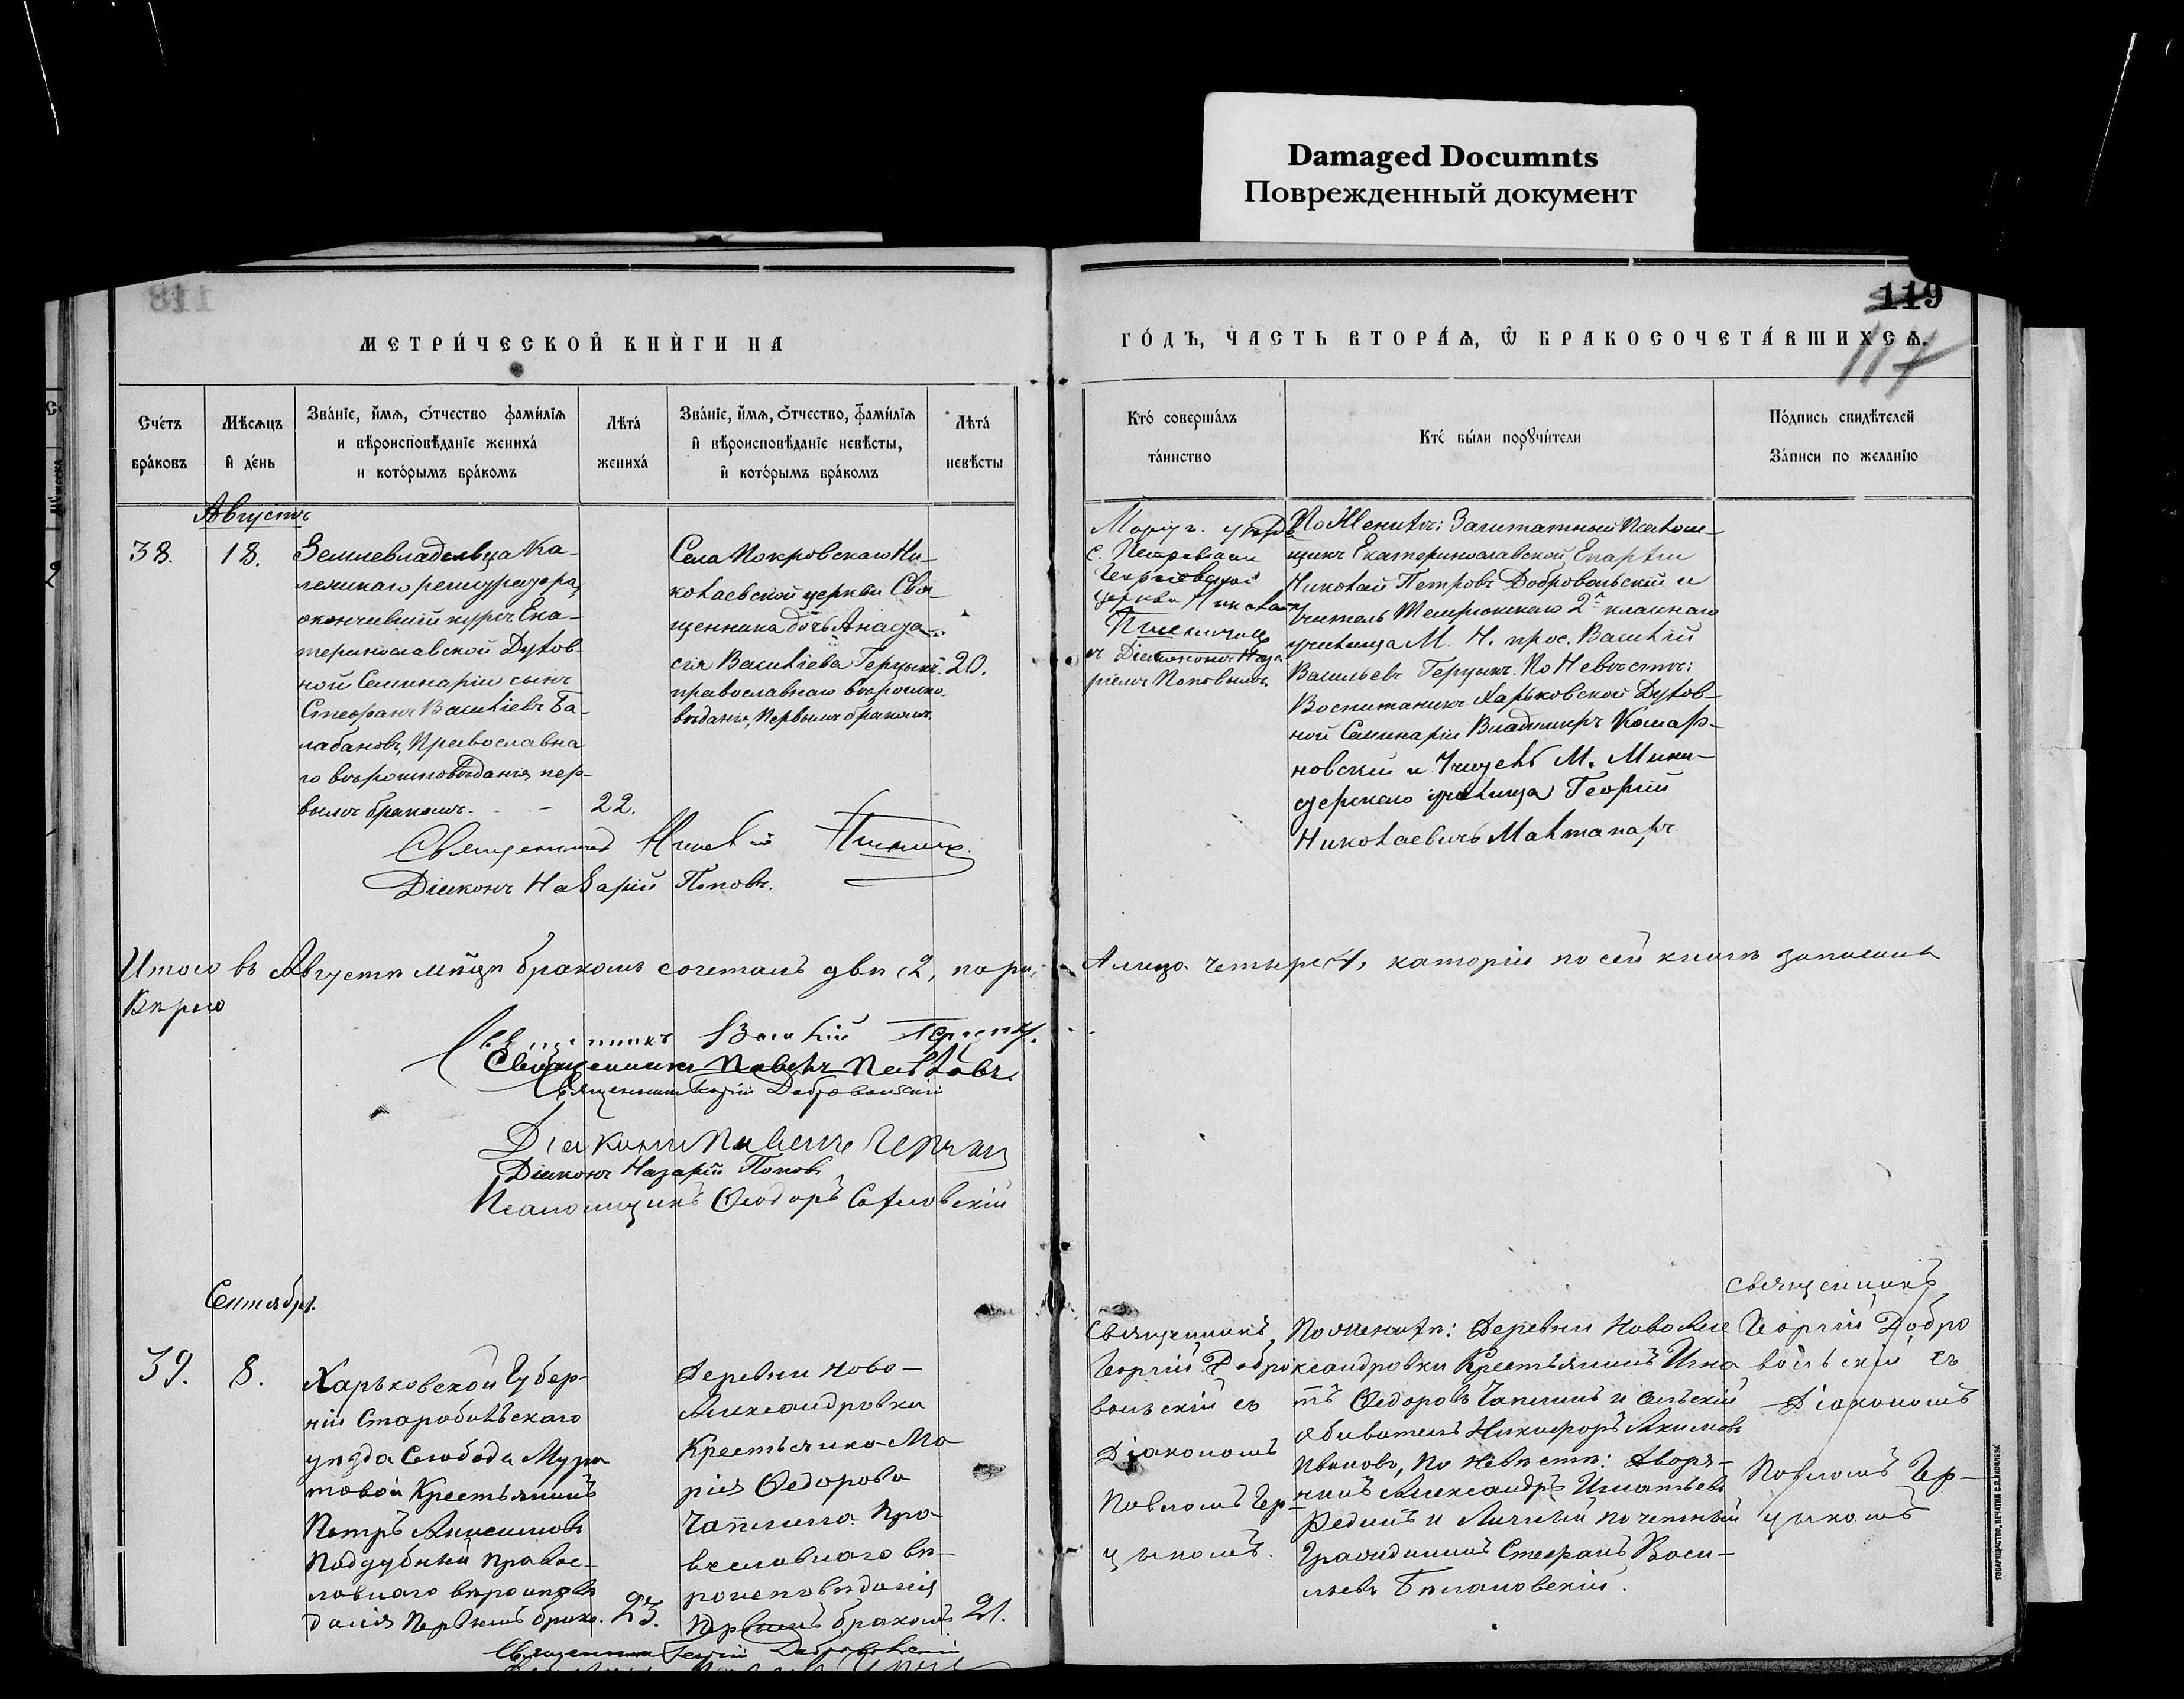 Damaged Documnts
Поврежденный документ
118
119
117
МЕТРИ́ЧЕСКОЙ КНИ́ГИ НА
ГО́ДЪ, ЧА́СТЬ ВТОРА́Ѧ, Ѿ БРАКОСОЧЕТА́ВШИХСѦ.
Сче́тъ
бра́ковъ
Мѣ́сѧцъ
и де́нь
Зва́нїе, и́мѧ, о́тчество фами́лїѧ
и вѣроисповѣ́данїе жениха́
и кото́рымъ бра́комъ
Лѣта́
жениха́
Зва́нїе, и́мѧ, о́тчество, фами́лїѧ
и вѣроисповѣ́данїе невѣ́сты,
и кото́рымъ бра́комъ
Лѣта́
невѣ́сты
Кто́ соверша́лъ
та́инство
Кто́ бы́ли порꙋчи́тели
По́дпись свидѣ́телей
За́писи по жела́нїю
Августъ
38.
18.
Землевладельца Ка-
лежскаго регистратора,
окончившій курсъ Ека-
теринославской Духов-
ной Семинаріи сынъ
Стефанъ Василіевъ Ба-
лабановъ, Православна
го вѣроисповѣданія, пер-
вымъ бракомъ. -
22.
Села Покровскаго Ни-
колаевской церкви Свя-
щенника дочь Анаста-
сія Василіева Герцыкъ
20.
православнаго вѣроиспо
вѣданія, Первымъ бракомъ.
Маріуп. уѣзда
с. Петровскаго
Георгіевской
церкви Николай
съ Діакономъ Наза-
ріемъ Поповымъ.
По Женихѣ: Заштатный Псалом-
щикъ Екатеринославской Епархіи
Николай Петровъ Добровольскій и
Учитель Темрюкскаго 2х класнаго
училища М. Н. прос. Василій
Васильевъ Герцыкъ. По Невѣстѣ:
Воспитаникъ Харьковской Духов-
ной Семинаріи Владиміръ Комар-
новскій и Учитель М. Мини-
стерскаго училища Георгій
Николаевичъ Малтапаръ
Священникъ Николай
Діаконъ Назарій Поповъ.
Итого въ Августѣ мѣсцѣ бракомъ сочеталъ двѣ (2, пары,
А лица четыре (4, которіи по сей книгѣ записаны
Вѣрно
Священникъ Василій Герцыкъ.
Священникъ Павелъ Павловъ.
Священникъ Георгій Добровольскій
Діаконъ Павелъ Герцыкъ
Діаконъ Назарій Поповъ
Псаломщикъ Ѳеодоръ
Сентябрь.
39.
8.
Харьковской Губер-
ніи Старобѣльскаго
уѣзда Слобода Мура
товой Крестьянинъ
Петръ Анисимовъ
Поддубный Правос-
лавнаго вѣроисповѣ
данія Первымъ брако.
23.
Деревни Ново-
Александровки
Крестьянка Ма
рія Ѳедорова
Чаплина Пра-
вославнаго вѣ-
роисповѣданія
Первымъ бракомъ
21.
Священникъ
Георгій Добро
вольскій съ
Діакономъ
Павломъ Гер-
цыкомъ.
По женихѣ: Деревни Новоале
ксандровки Крестьянинъ Игна
тъ Ѳедоровъ Чаплинъ и сельскій
обыватель Никифоръ Акимовъ
Ивановъ, По невѣстѣ: Дворя-
нинъ Александръ Игнатьевъ
Рединъ и Личный почетный
Гражданинъ Стефанъ Васи-
льевъ Билановскій.
Священникъ
Георгій Добро
вольскій съ
Діакономъ
Павломъ Гер-
цыкомъ
Священникъ Георгій Добровольскій
ТОВАРИЩЕСТВО „ПЕЧАТНЯ С.П. ЯКОВЛЕВА